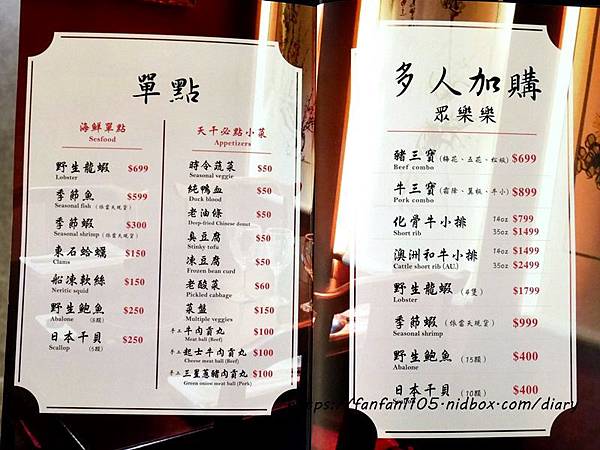 單點
海鮮單點
Seafood
野生龍蝦 $699
Lobster
季節魚 $599
Seasonal fish (依當天現貨)
季節蝦 $300
Seasonal shrimp (依當天現貨)
東石蛤蠣 $150
Clams
船凍軟絲 $150
Neritic squid
野生鮑魚 $250
Abalone (6顆)
日本干貝 $250
Scallop (5顆)
天干必點小菜
Appetizers
時令蔬菜 $50
Seasonal veggie
純鴨血 $50
Duck blood
老油條 $50
Deep-fried Chinese donut
臭豆腐 $50
Stinky tofu
凍豆腐 $50
Frozen bean curd
老酸菜 $60
Pickled cabbage
菜盤 $150
Multiple veggies
手工 牛肉貢丸 $100
Meat ball (Beef)
手工 起士牛肉貢丸 $100
Cheese meat ball (Beef)
手工 三星蔥豬肉貢丸 $100
Green onion meat ball (Pork)
多人加購
眾樂樂
豬三寶 (梅花、五花、松板) $699
Beef combo
牛三寶 (霜降、翼板、牛小) $899
Pork combo
化骨牛小排 14oz $799
Short rib 35oz $1499
澳洲和牛小排 14oz $1499
Cattle short rib (AU.) 35oz $2499
野生龍蝦 (4隻) $1799
Lobster
季節蝦 (依當天現貨) $999
Seasonal shrimp
野生鮑魚 (15顆) $400
Abalone
日本干貝 (10顆) $400
https://fanfan1105.nidbox.com/diary